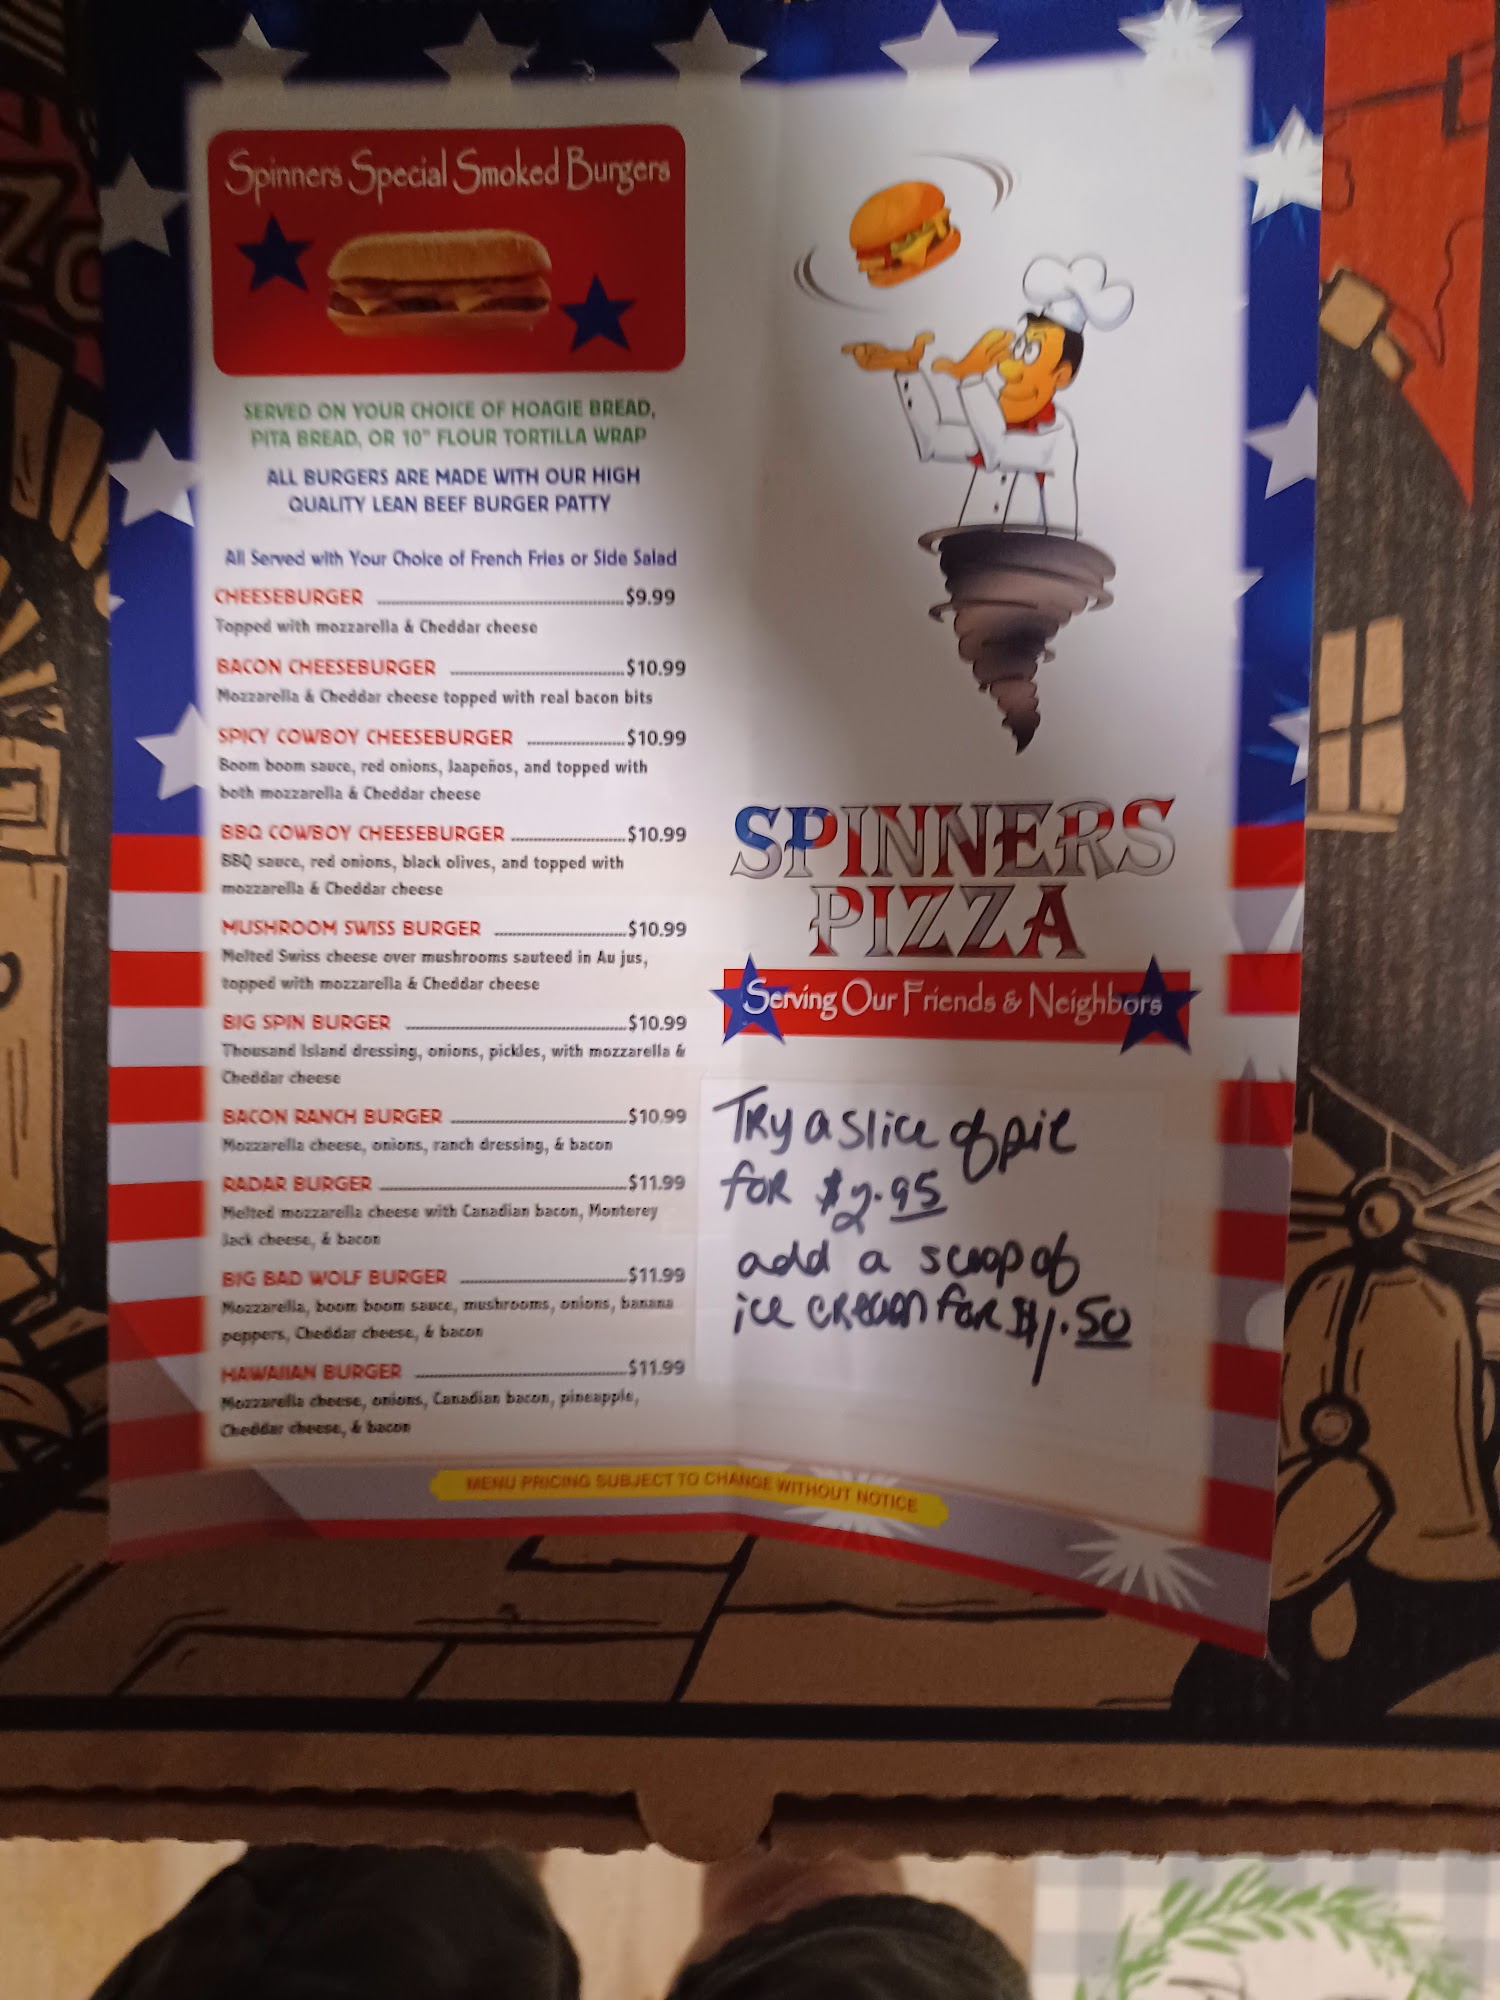 Spinners Special Smoked Burgers
SERVED ON YOUR CHOICE OF HOAGIE BREAD,
PITA BREAD, OR 10" FLOUR TORTILLA WRAP
ALL BURGERS ARE MADE WITH OUR HIGH
QUALITY LEAN BEEF BURGER PATTY
All Served with Your Choice of French Fries or Side Salad
CHEESEBURGER $9.99
Topped with mozzarella & Cheddar cheese
BACON CHEESEBURGER $10.99
Mozzarella & Cheddar cheese topped with real bacon bits
SPICY COWBOY CHEESEBURGER $10.99
Boom boom sauce, red onions, Jaapeños, and topped with
both mozzarella & Cheddar cheese
BBQ COWBOY CHEESEBURGER $10.99
BBQ sauce, red onions, black olives, and topped with
mozzarella & Cheddar cheese
MUSHROOM SWISS BURGER $10.99
Melted Swiss cheese over mushrooms sauteed in Au jus,
topped with mozzarella & Cheddar cheese
BIG SPIN BURGER $10.99
Thousand Island dressing, onions, pickles, with mozzarella &
Cheddar cheese
BACON RANCH BURGER $10.99
Mozzarella cheese, onions, ranch dressing, & bacon
RADAR BURGER $11.99
Melted mozzarella cheese with Canadian bacon, Monterey
Jack cheese, & bacon
BIG BAD WOLF BURGER $11.99
Mozzarella, boom boom sauce, mushrooms, onions, banana
peppers, Cheddar cheese, & bacon
HAWAIIAN BURGER $11.99
Mozzarella cheese, onions, Canadian bacon, pineapple,
Cheddar cheese, & bacon
SPINNERS
PIZZA
Serving Our Friends & Neighbors
Try a slice of pie
for $2.95
add a scoop of
ice cream for $1.50
MENU PRICING SUBJECT TO CHANGE WITHOUT NOTICE